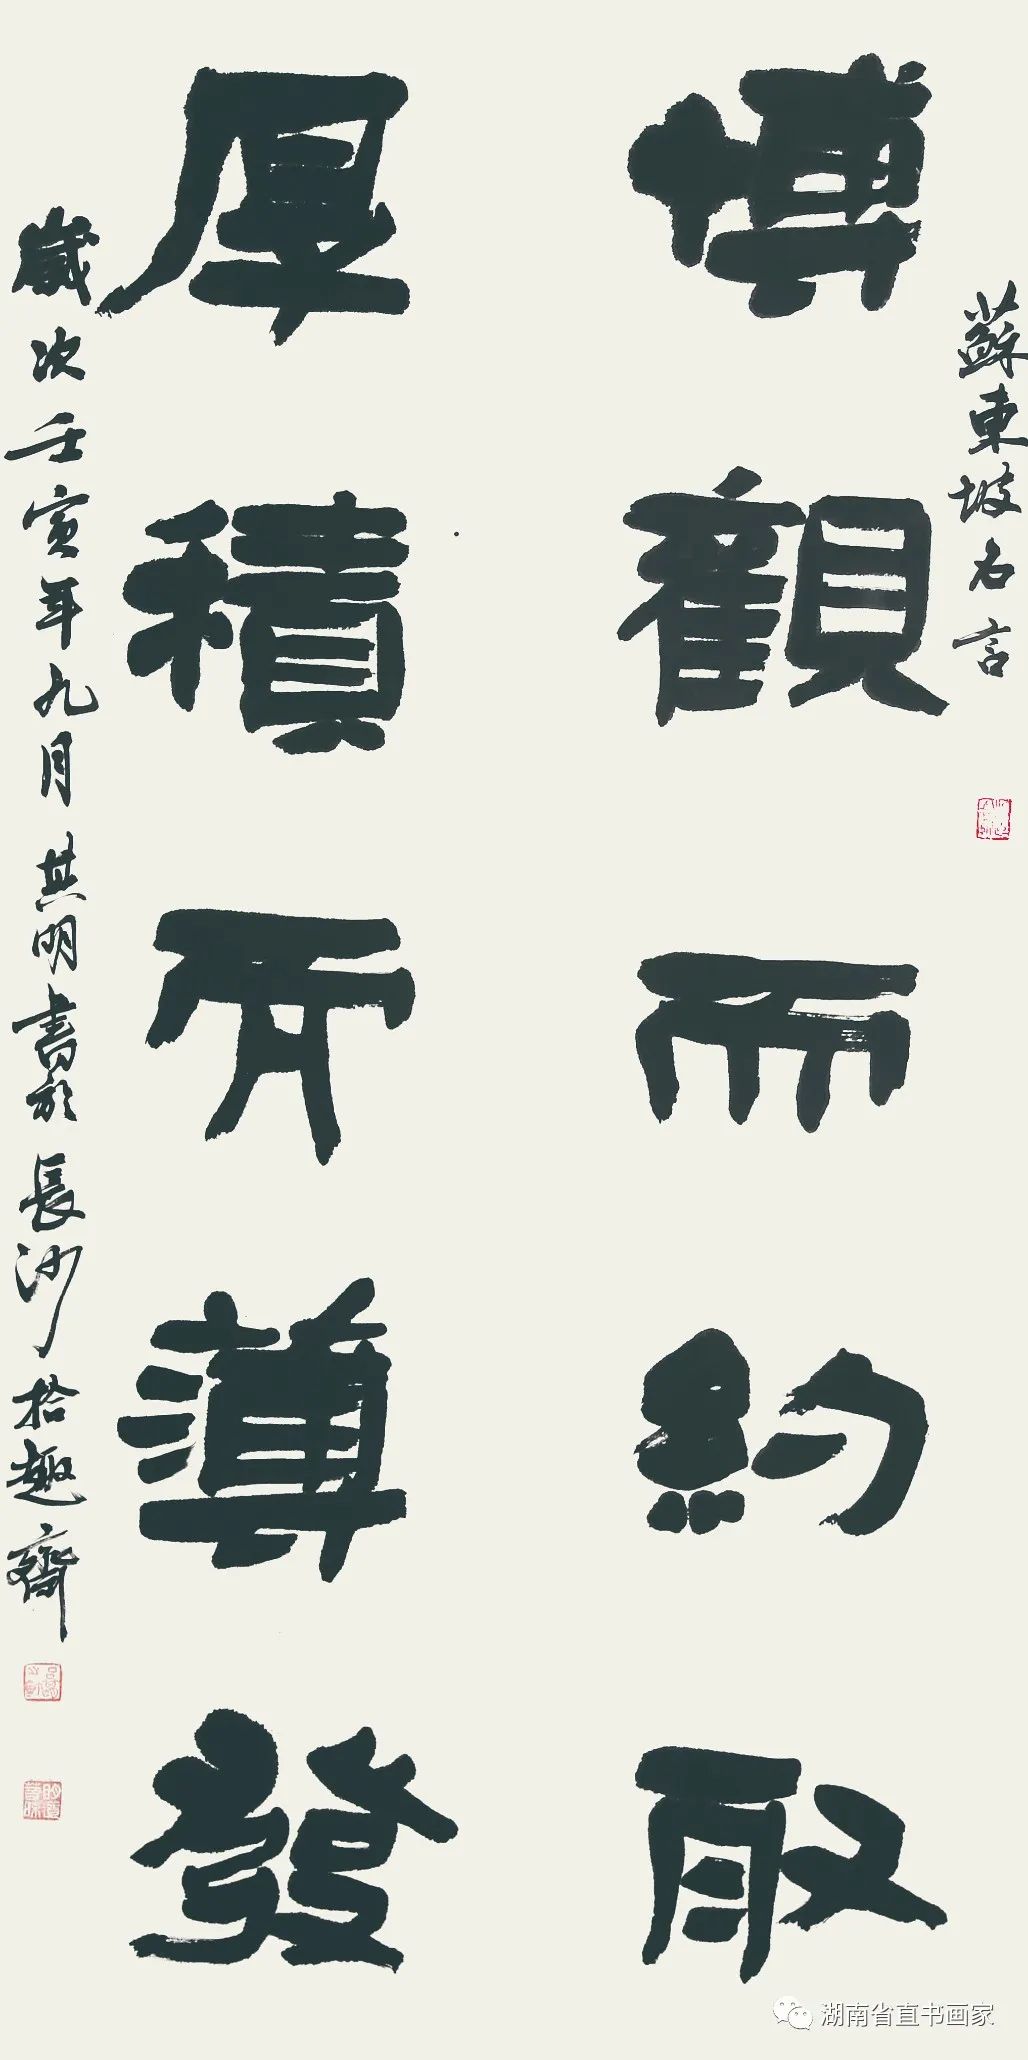 蘇東坡名言
博觀而約取
厚積而薄發
歲次壬寅年九月其明書於長沙拾趣齋
湖南省直书画家